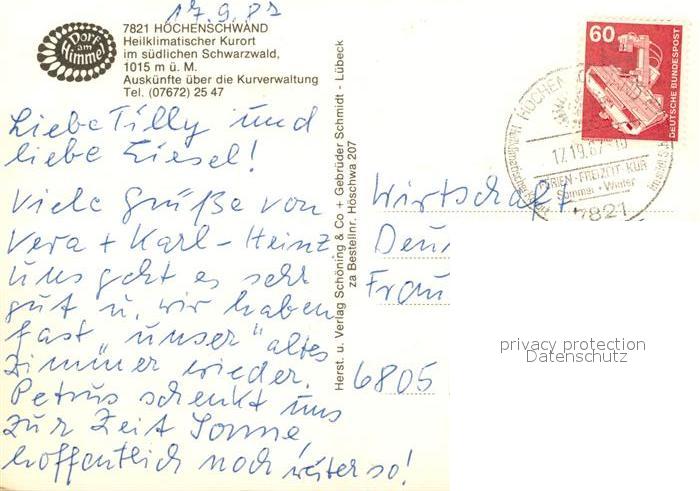 17.9.87
Dorf
am
Himmel
7821 HÖCHENSCHWAND
Heilklimatischer Kurort
im südlichen Schwarzwald,
1015 m ü. M.
Auskünfte über die Kurverwaltung
Tel. (07672) 25 47
Liebe Tilly und
liebe Liesel!
Viele Grüße von
Vera + Karl-Heinz
Uns geht es sehr
gut u. wir haben
fast "unser" altes
Zimmer wieder.
Petrus schenkt uns
zur Zeit Sonne,
hoffentlich noch weiter so!
Herst. u. Verlag Schöning & Co + Gebrüder Schmidt - Lübeck
za Bestellnr. Höschwa 207
60
DEUTSCHE BUNDESPOST
FERIEN-FREIZEIT-KUR
Sommer + Winter
7821
Wirtschaft
Deu
Frau
6805
privacy protection
Datenschutz